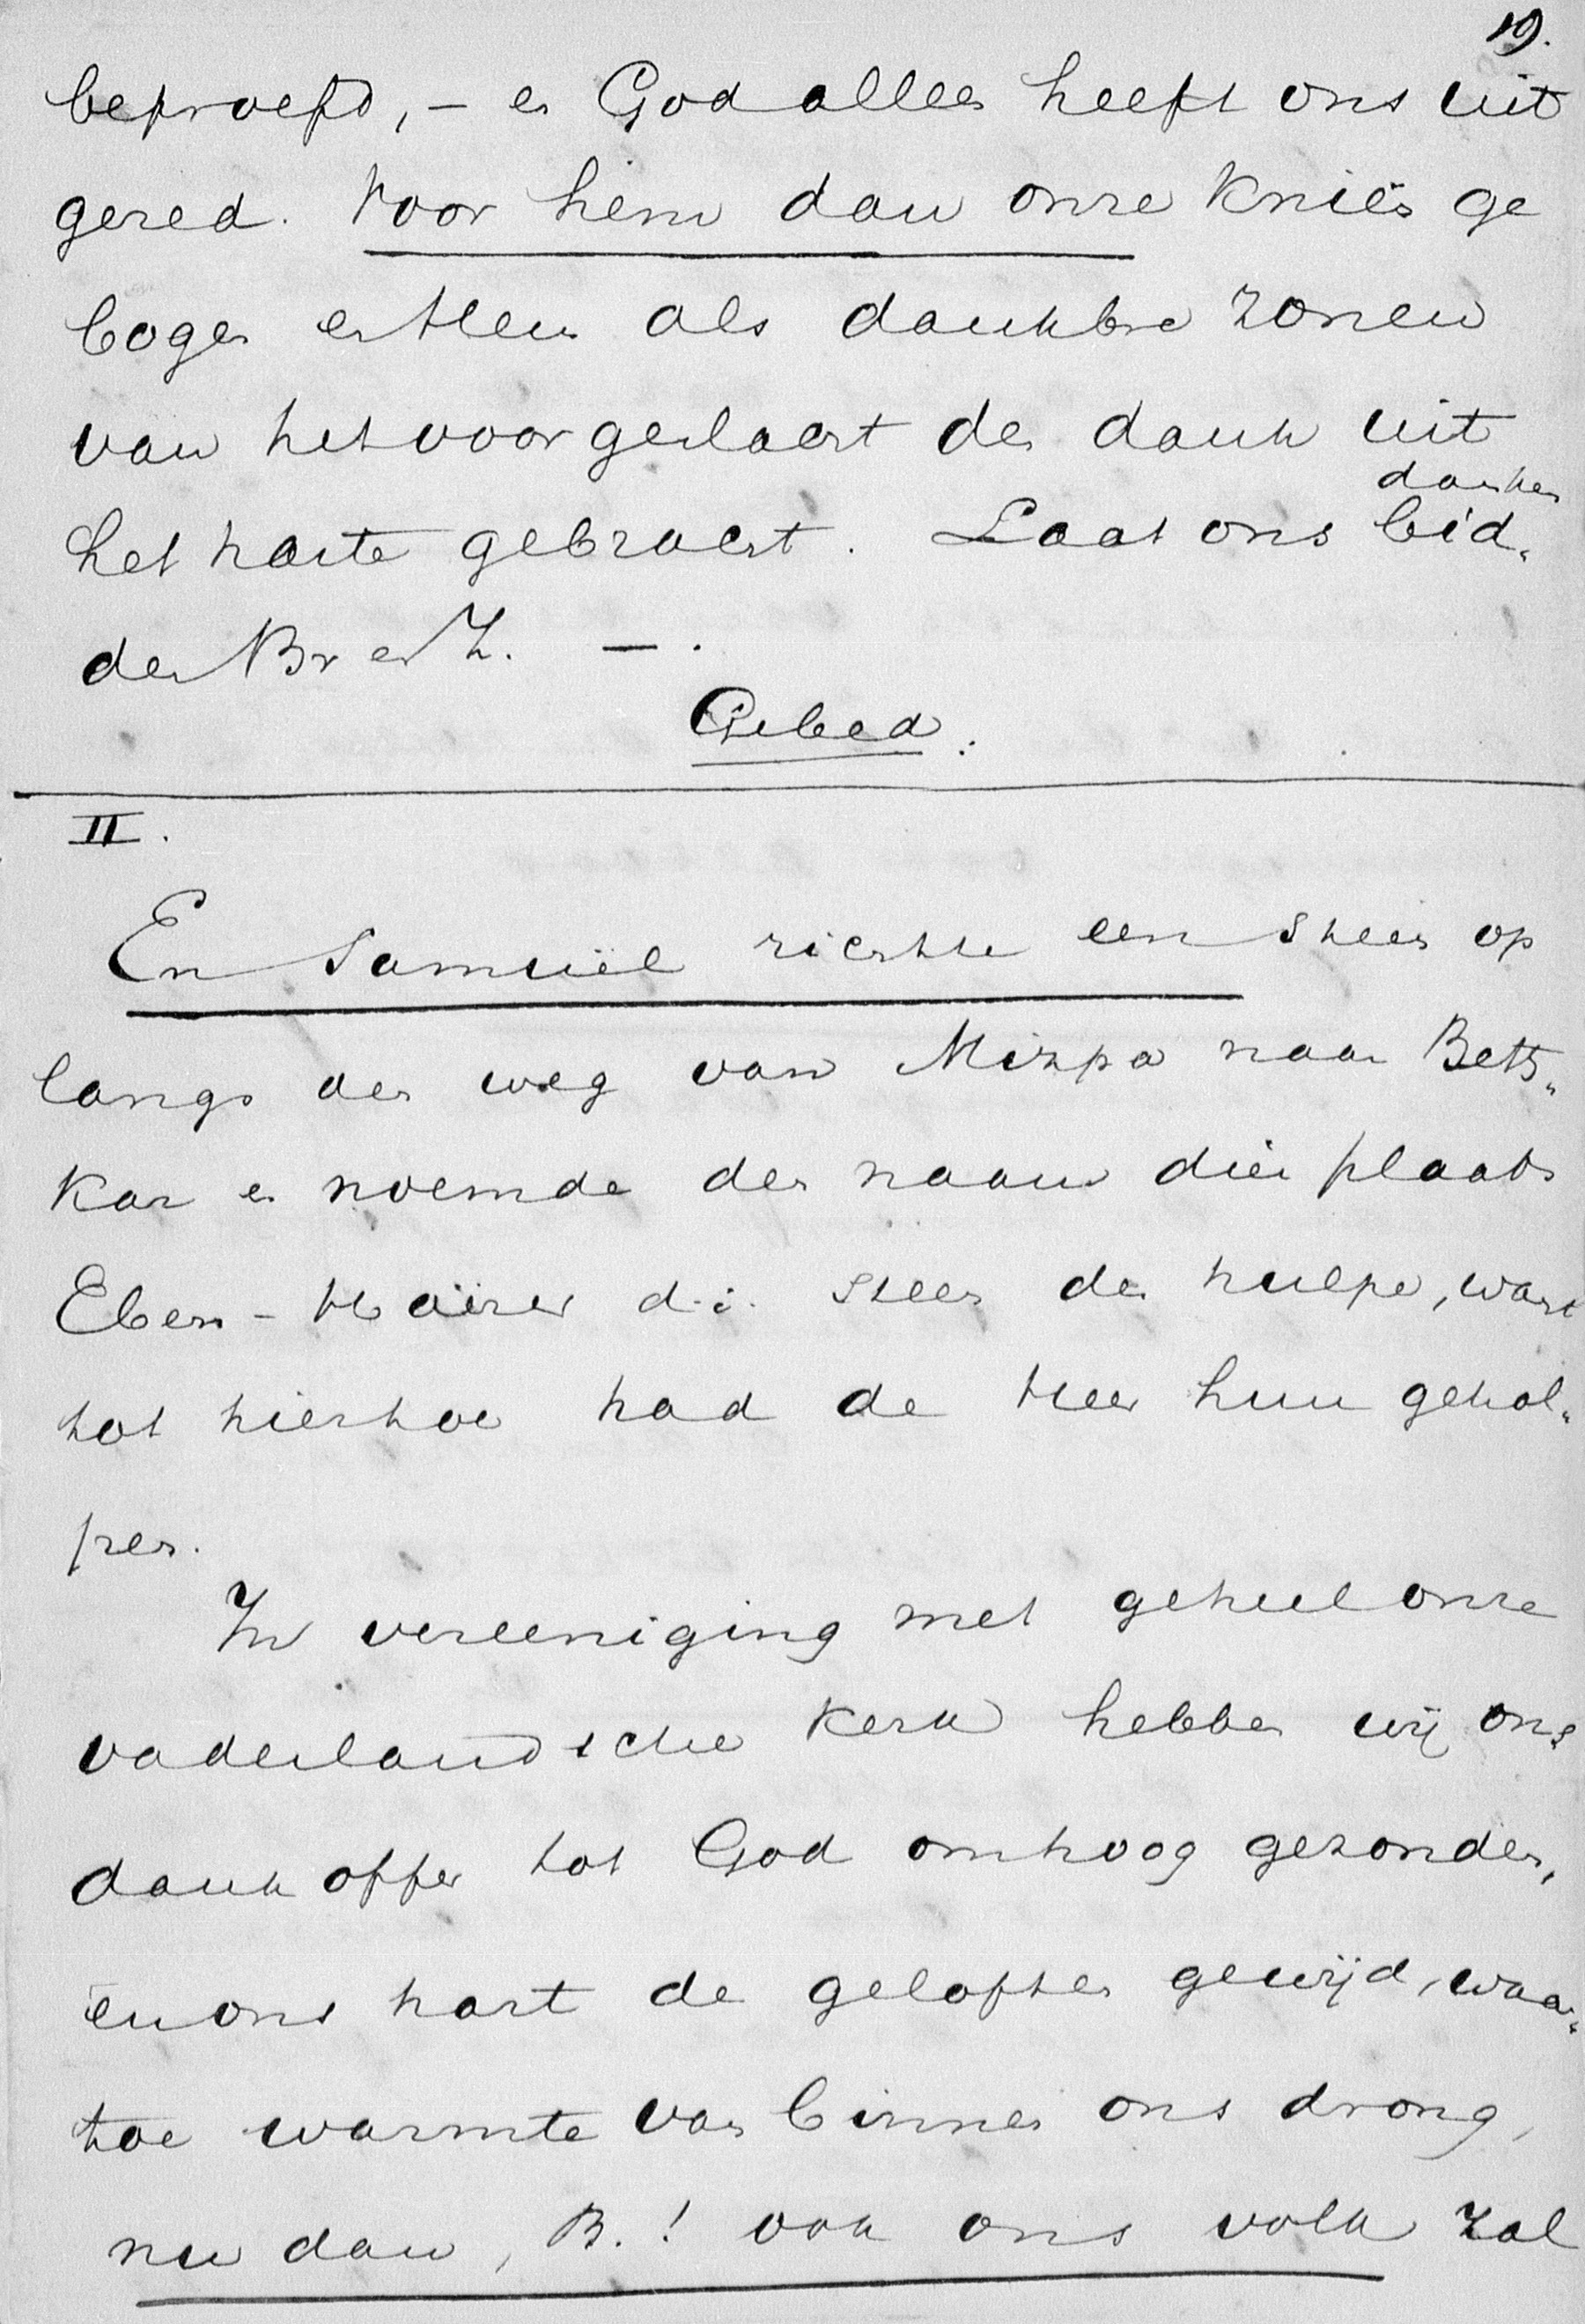 19.
beproefd, – en God alleen heeft ons uit
gered. Voor hem dan onze knieën ge
bogen en Hem als dankbre zonen
van het voorgeslacht den dank uit
het harte gebracht. Laat ons bid„
danken
den Br en Z. — .
Gebed.
II.
En Samuël richtte een steen op
langs den weg van Mizpa naar Beth„
Kar en noemde den naam dier plaats
Eben-Haëzer d.i. steen der hulpe, want
tot hiertoe had de Heer hun gehol„
pen.
In vereeniging met geheel onze
vaderlandsche Kerk hebben wij ons
dankoffer tot God omhoog gezonden,
en ons hart de geloften gewijd, waar„
toe warmte van binnen ons drong,
nu dan, B.! ook ons volk zal